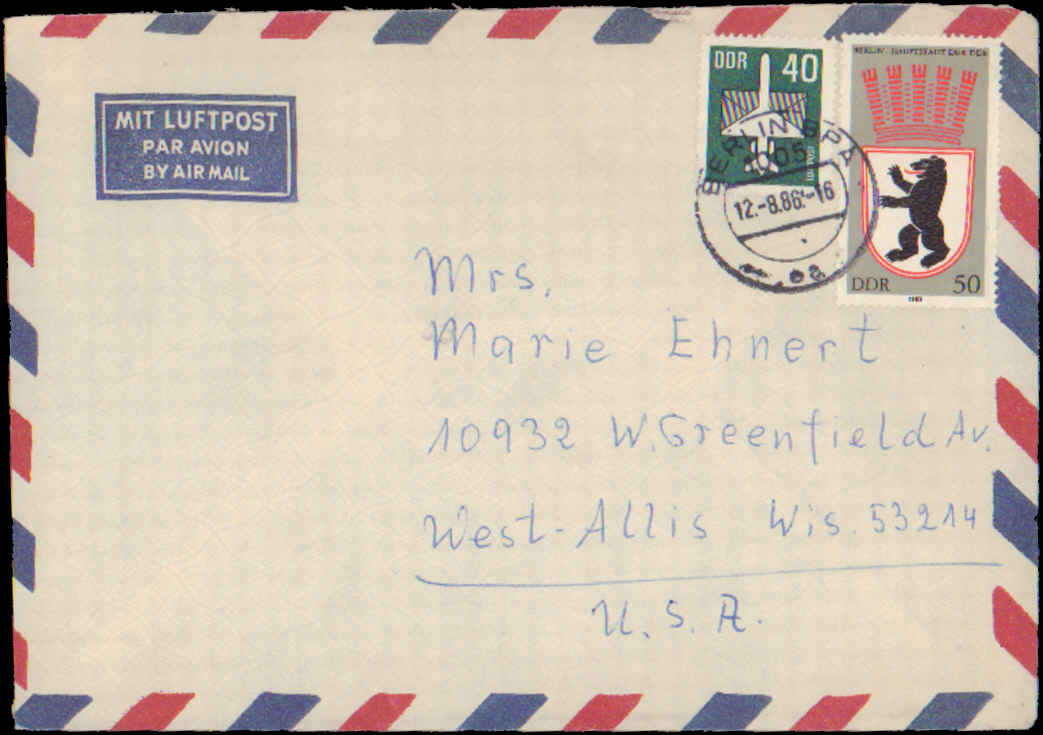 MIT LUFTPOST
PAR AVION
BY AIR MAIL
DDR 40
LUFTPOST
BERLIN · HAUPTSTADT DER DDR
DDR 50
1983
BERLIN
12.-8.86.-16
Mrs.
Marie Ehnert
10932 W. Greenfield Av.
West-Allis Wis. 53214
U. S. A.